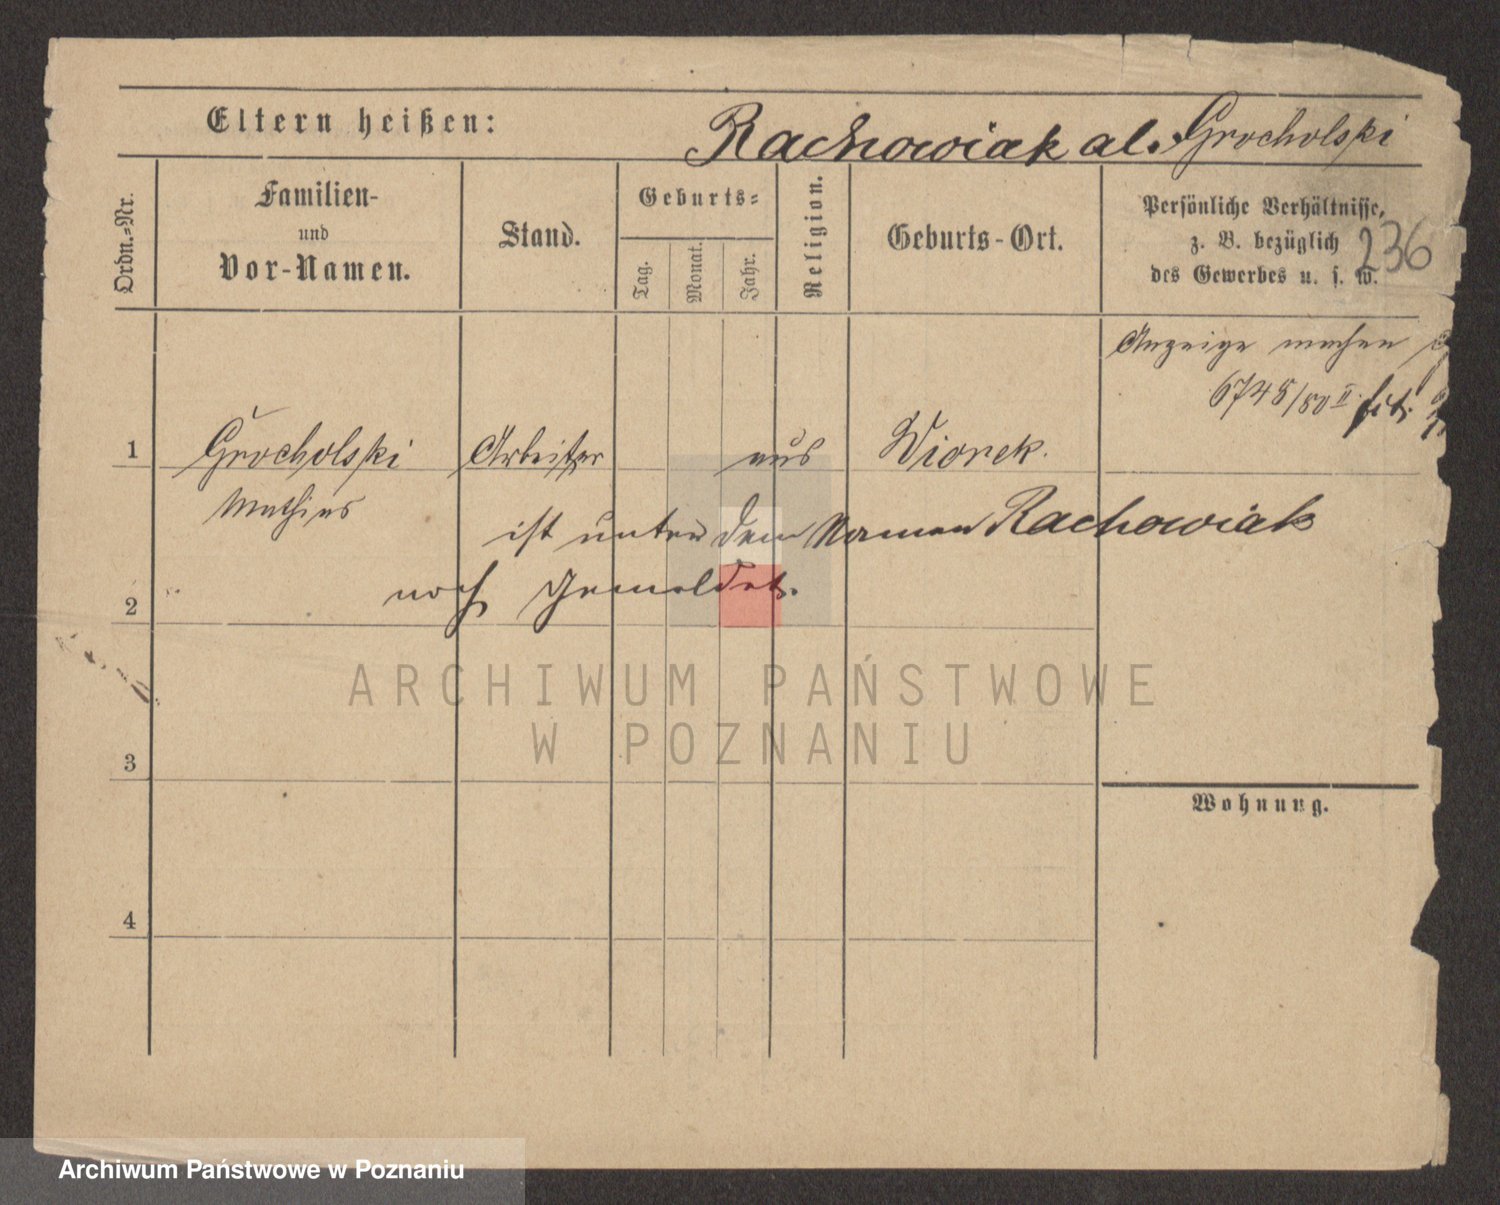 Eltern heißen:
Rachowiak al. Grocholski
Ordn.=Nr.
Familien-
und
Vor-Namen.
Stand.
Geburts=
Tag.
Monat.
Jahr.
Religion.
Geburts-Ort.
Persönliche Verhältnisse,
z. B. bezüglich
des Gewerbes u. s. w.
236
Anzeige machen
6745/80 II
1
Grocholski
Mathias
Arbeiter
aus
Wiorek.
ist unter dem Namen Rachowiak
noch gemeldet.
2
3
Wohnung.
4
ARCHIWUM PAŃSTWOWE
W POZNANIU
Archiwum Państwowe w Poznaniu